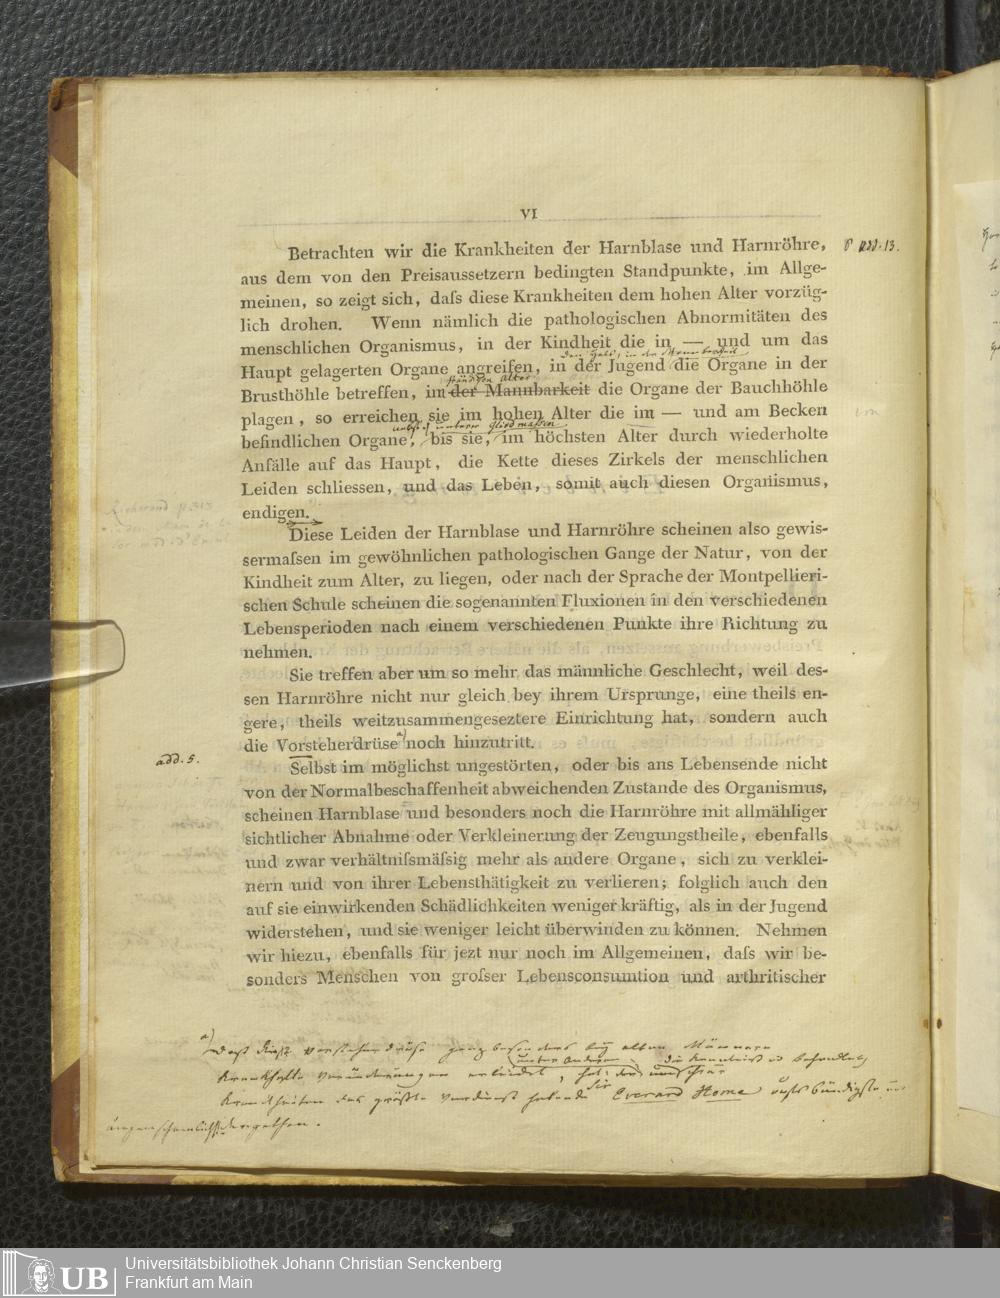 VI
Betrachten wir die Krankheiten der Harnblase und Harnröhre,
add. 13.
aus dem von den Preisaussetzern bedingten Standpunkte, im Allge-
meinen, so zeigt sich, daſs diese Krankheiten dem hohen Alter vorzüg-
lich drohen. Wenn nämlich die pathologischen Abnormitäten des
menschlichen Organismus, in der Kindheit die in — und um das
Haupt gelagerten Organe angreifen, in der Jugend die Organe in der
Brusthöhle betreffen, im der Mannbarkeit die Organe der Bauchhöhle
plagen, so erreichen sie im hohen Alter die im — und am Becken
befindlichen Organe, bis sie, im höchsten Alter durch wiederholte
Anfälle auf das Haupt, die Kette dieses Zirkels der menschlichen
Leiden schliessen, und das Leben, somit auch diesen Organismus,
endigen.
Diese Leiden der Harnblase und Harnröhre scheinen also gewis-
sermaſsen im gewöhnlichen pathologischen Gange der Natur, von der
Kindheit zum Alter, zu liegen, oder nach der Sprache der Montpellieri-
schen Schule scheinen die sogenannten Fluxionen in den verschiedenen
Lebensperioden nach einem verschiedenen Punkte ihre Richtung zu
nehmen.
Sie treffen aber um so mehr das männliche Geschlecht, weil des-
sen Harnröhre nicht nur gleich bey ihrem Ursprunge, eine theils en-
gere, theils weitzusammengeseztere Einrichtung hat, sondern auch
die Vorsteherdrüse a) noch hinzutritt.
add. 5.
Selbst im möglichst ungestörten, oder bis ans Lebensende nicht
von der Normalbeschaffenheit abweichenden Zustande des Organismus,
scheinen Harnblase und besonders noch die Harnröhre mit allmähliger
sichtlicher Abnahme oder Verkleinerung der Zeugungstheile, ebenfalls
und zwar verhältniſsmäſsig mehr als andere Organe, sich zu verklei-
nern und von ihrer Lebensthätigkeit zu verlieren; folglich auch den
auf sie einwirkenden Schädlichkeiten weniger kräftig, als in der Jugend
widerstehen, und sie weniger leicht überwinden zu können. Nehmen
wir hiezu, ebenfalls für jezt nur noch im Allgemeinen, daſs wir be-
sonders Menschen von groſser Lebensconsumtion und arthritischer
a) Daſs diese Vorsteherdrüse ganz besonders bey alten Männern
krankhafte Veränderungen erleidet, hat unter Anderen
Krankheiten das größte Verdienst habende Sir Everard Home
Universitätsbibliothek Johann Christian Senckenberg
UB Frankfurt am Main